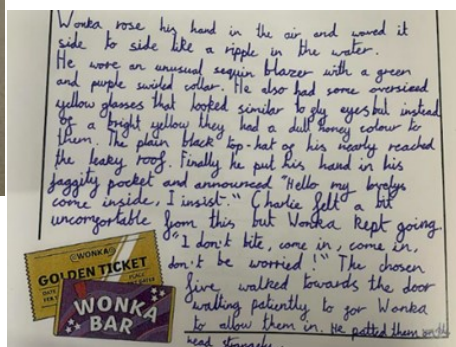 Wonka rose his hand in the air and waved it
side to side like a ripple in the water.
He wore an unusual sequin blazer with a green
and purple swirled collar. He also had some oversized
yellow glasses that looked similar to fly eyes but instead
of a bright yellow they had a dull honey colour to
them. The plain black top-hat of his nearly reached
the leaky roof. Finally he put his hand in his
jaggity pocket and announced "Hello my lovelys
come inside, I insist." Charlie felt a bit
uncomfortable from this but Wonka kept going.
"I don't bite, come in, come in,
don't be worried!" The chosen
five walked towards the door
waiting patiently to for Wonka
to allow them in. He patted them on the
head strangely.
WONKA
GOLDEN TICKET
WONKA
BAR